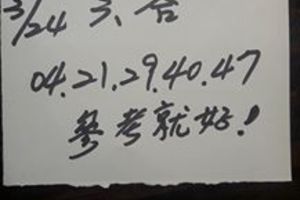 3/24 六、合
04.21.29.40.47
參考就好!